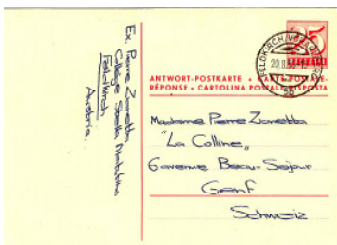 Ex. Pierre Zanetta
Collège Stella Matutina
Feldkirch
Austria.
25
FELDKIRCH
20.8.
ANTWORT-POSTKARTE • CARTE POSTALE-
RÉPONSE • CARTOLINA POSTALE RISPOSTA
Madame Pierre Zanetta
"La Colline"
6 avenue Beau-Séjour
Genf
Schweiz